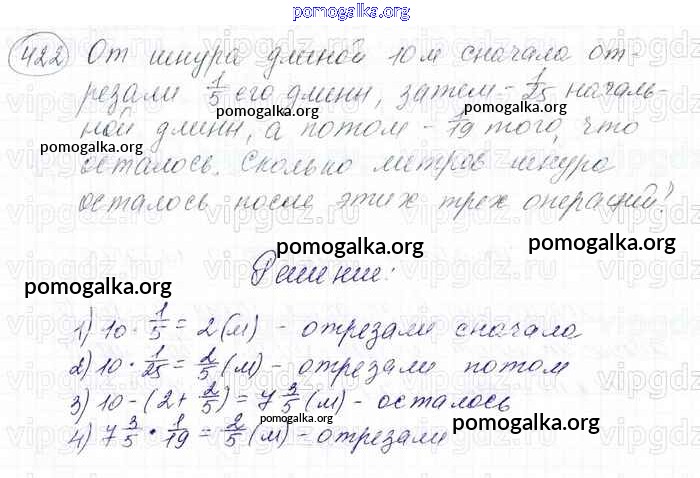 pomogalka.org
422 От шнура длиной 10 м сначала от-
резали 1/5 его длины, затем - 1/25 началь-
pomogalka.org pomogalka.org
ной длины, а потом - 1/19 того, что
pomogalka.org pomogalka.org
осталось. Сколько метров шнура
осталось после этих трех операций?
pomogalka.org pomogalka.org
Решение:
pomogalka.org pomogalka.org
1) 10 · 1/5 = 2 (м) - отрезали сначала
2) 10 · 1/25 = 2/5 (м) - отрезали потом
pomogalka.org pomogalka.org
3) 10 - (2 + 2/5) = 7 3/5 (м) - осталось
pomogalka.org
4) 7 3/5 · 1/19 = 2/5 (м) - отрезали
pomogalka.org pomogalka.org